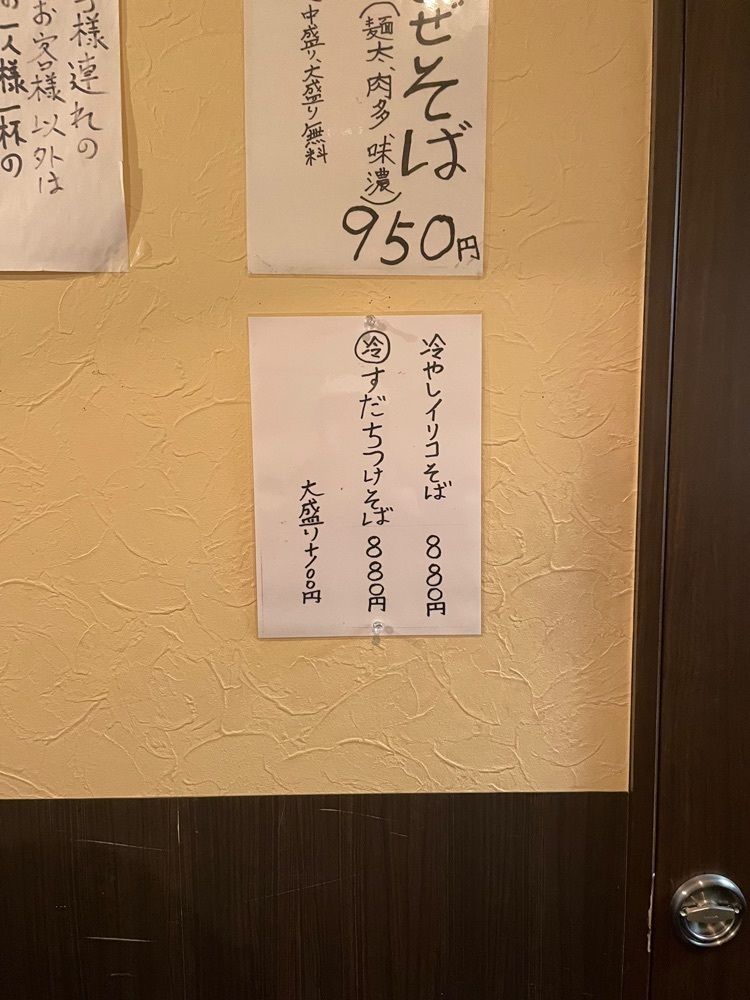 ぜそば
(麺太、肉多 味濃)
950円
中盛り、大盛り無料
様連れの
お客様以外は
一人様一杯の
冷やしイリコそば 880円
冷 すだちつけそば 880円
大盛り+100円